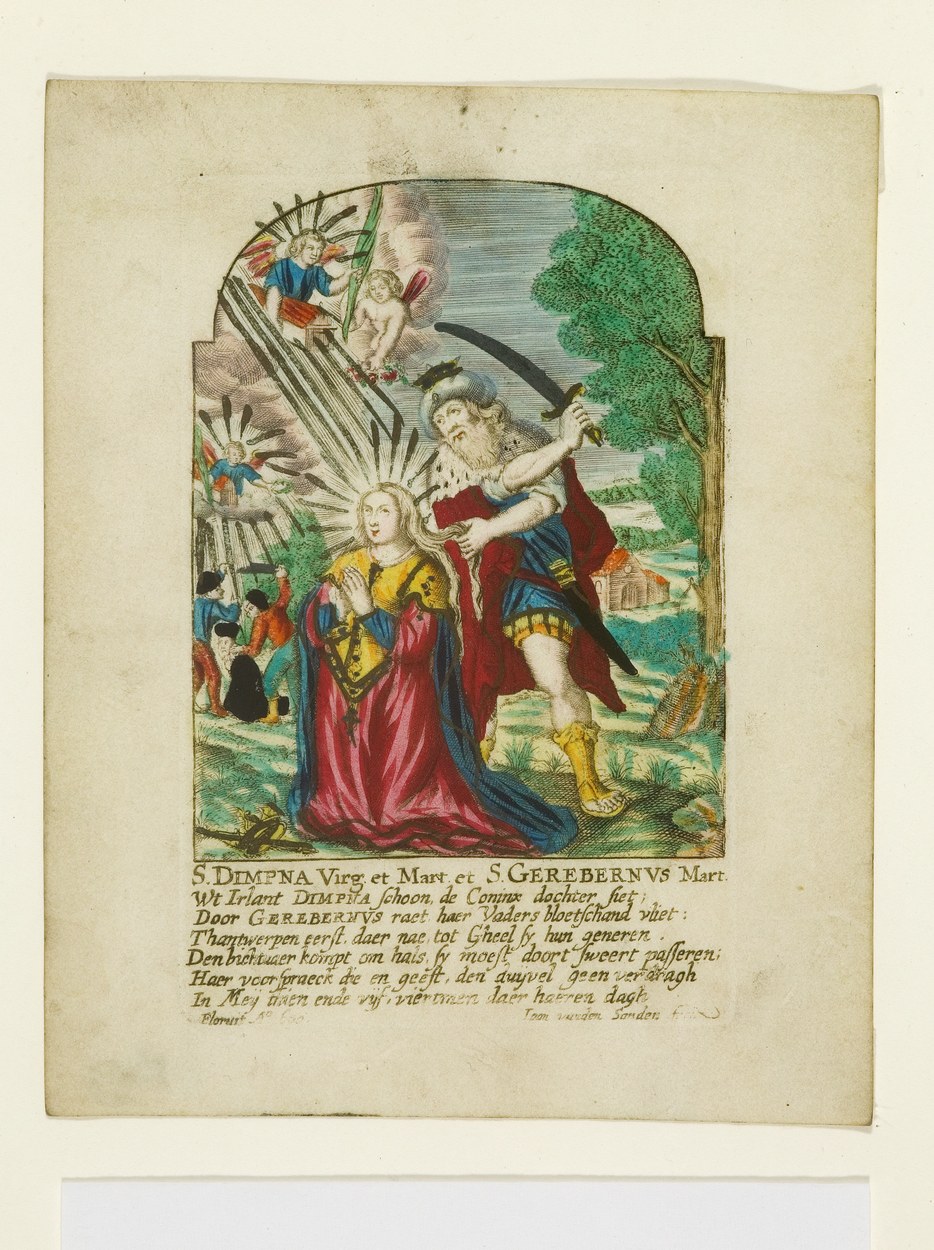 S. DIMPNA Virg. et Mart. et S. GEREBERNVS Mart.
Wt Irlant DIMPNA schoon, de Coninx dochter siet;
Door GEREBERNVS raet haer Vaders bloetschand vliet:
Thantwerpen eerst, daer nae, tot Gheel sy hun generen.
Den kompt om hals, sy moest doort sweert passeren;
Haer voorspraeck die en geeft, den duyvel geen verdragh
In Mey thien ende vijf, viertmen daer haeren dagh
Floruit Aº